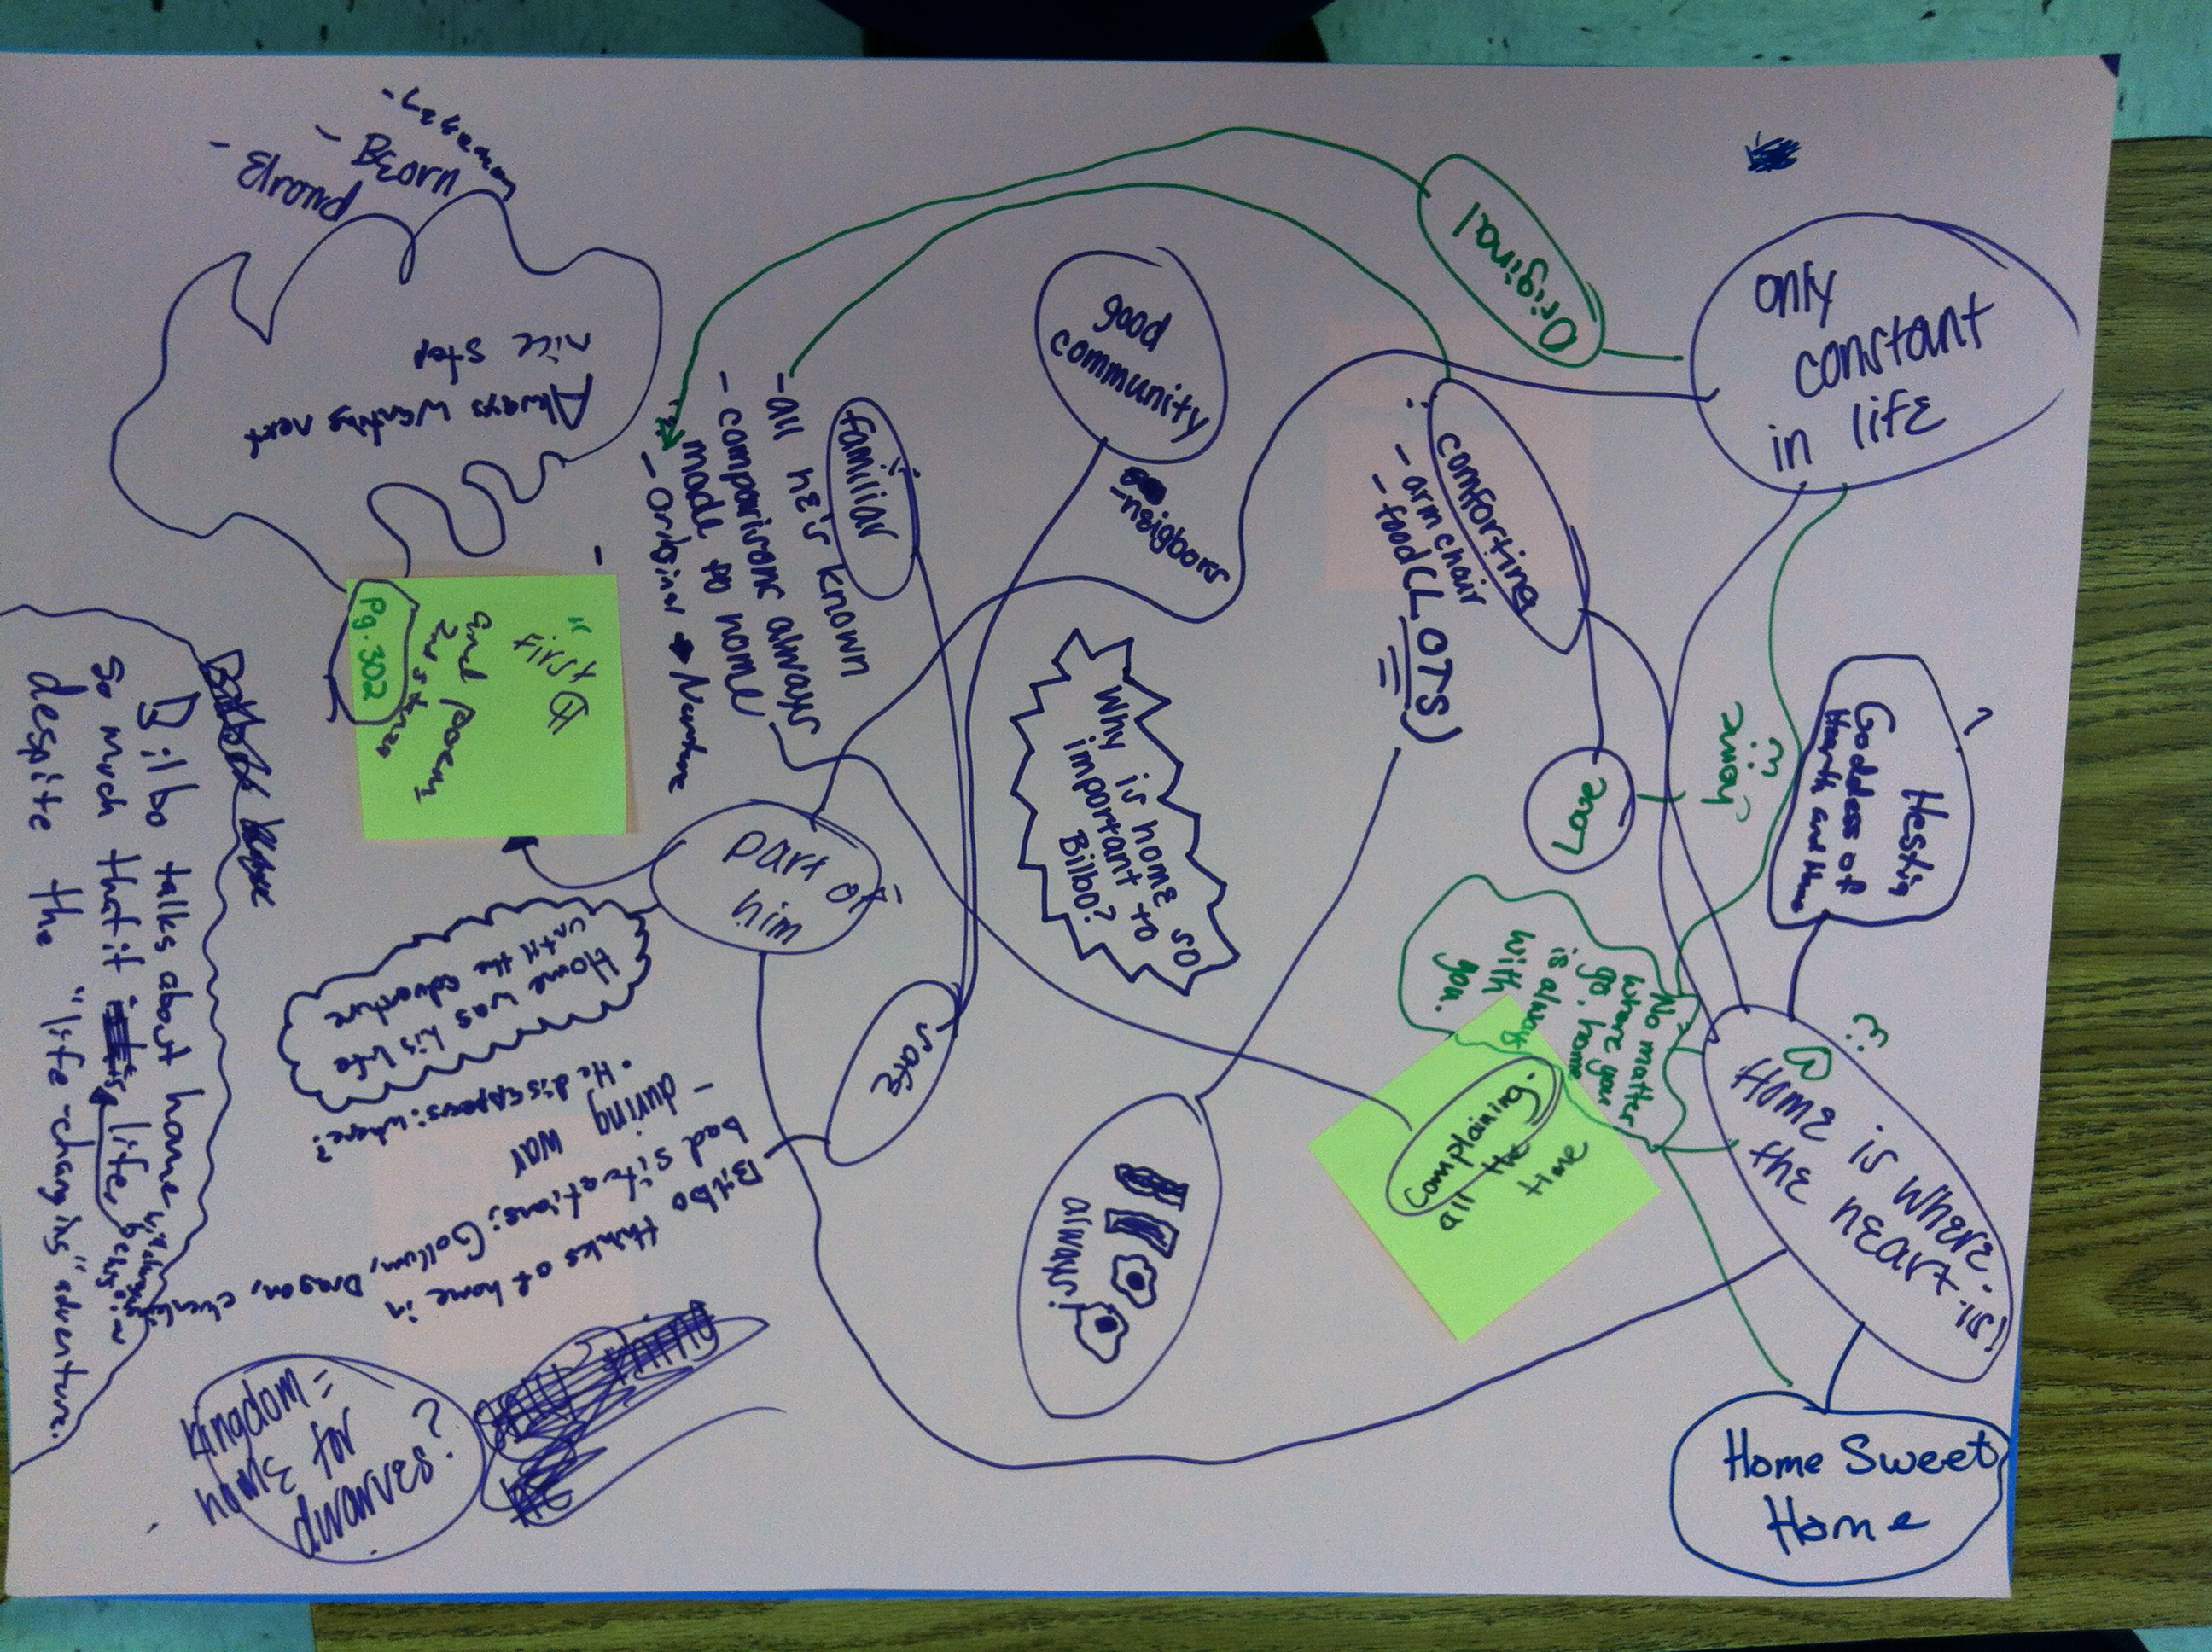 Why is home so
important to
Bilbo?
only
constant
in life
Original
good
community
-neigbors
familiar
-all he's known
-comparisons always
made to home
comforting
-arm chair
-food (LOTS)
Love
home
Hestia
Goddess of
Hearth and Home
Home is where
the heart is!
No matter
where you
go, home
is always
with
you.
Home Sweet
Home
complaining
all the
time
always!
safe
Bilbo thinks of home in
bad situations: Gollum, Dragon,
-during war
• He disappears: where?
part of
him
Home was his life
until the adventure
"first
and poem
2nd stanza
Pg. 302
Always wanting next
nice stop
- Elrond
- Beorn
Bilbo talks about home
so much that it
life,
despite the "life-changing" adventure.
Kingdom =
home for
dwarves?